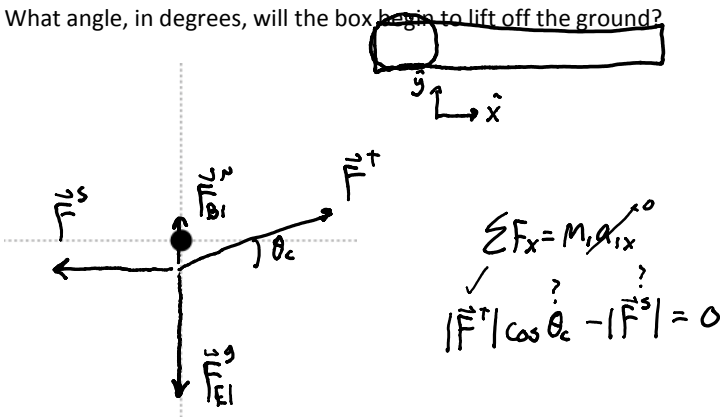 What angle, in degrees, will the box begin to lift off the ground?
ŷ
x̂
F⃗ᵀ
F⃗ᴺ_B1
F⃗ˢ
θc
F⃗ᵍ_E1
ΣFx = m₁a₁x 0
✓ ? ?
|F⃗ᵀ| cos θc - |F⃗ˢ| = 0